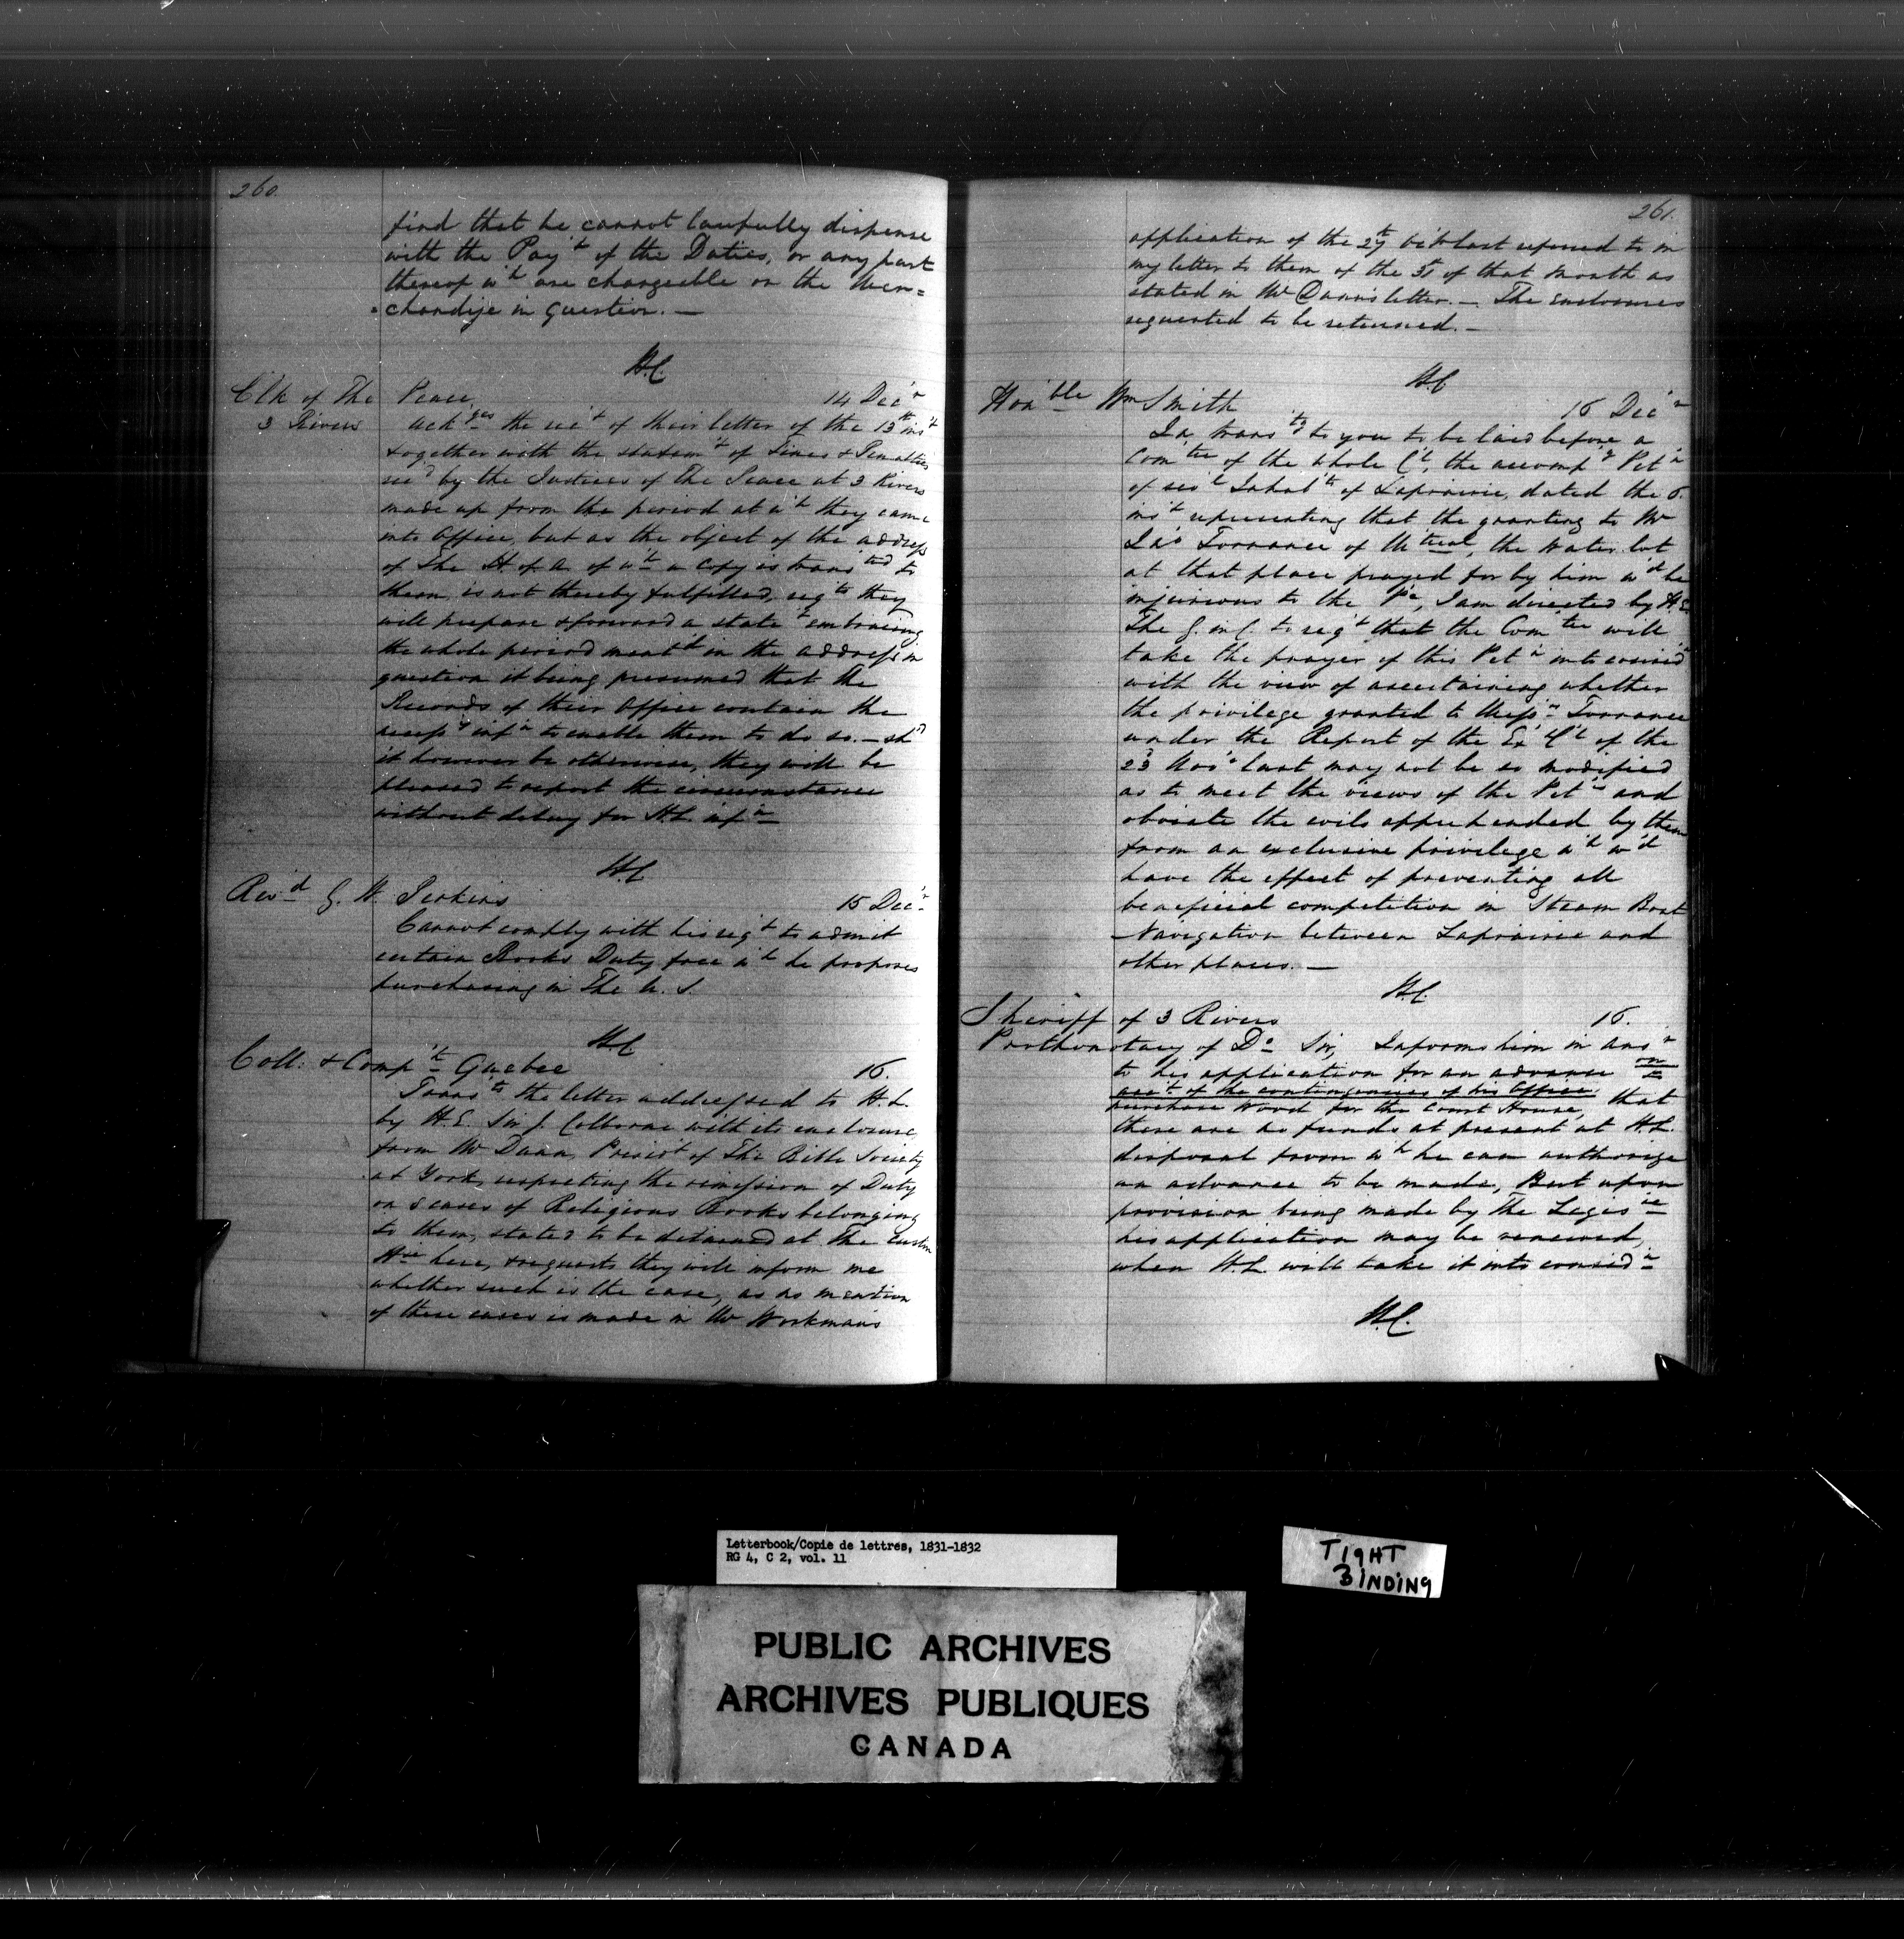 260.
find that he cannot lawfully dispense
with the Pay't of the Duties, or any part
thereof w'h are chargeable on the Mer=
=chandize in question. —
H.C.
Clk of The Peace, 14 Dec'r
3 Rivers Ack'ges the rec't of their letter of the 13th ins't
together with the statem't of Fines & Penalties
rec'd by the Justices of The Peace at 3 Rivers
made up from the period at w'h they came
into Office, but as the object of the address
of The H. of A. of w'h a copy is trans'ted to
them, is not thereby fulfilled, req'ts they
will prepare & forward a state't embracing
the whole period ment'd in the address in
question it being presumed that the
Records of their Office contain the
necess'y inf'n to enable them to do so. — sh'd
it however be otherwise, they will be
pleased to report the circumstance
without delay for H.L. inf'n
H.C.
Rev'd G. W. Perkins 15 Dec'r
Cannot comply with his req't to admit
certain Books Duty free w'h he proposes
purchasing in The U. S.
H.C.
Coll: & Comp't Quebec 16.
Trans'ts the letter addressed to H.L.
by H.E. Sir J. Colborne with its enclosure
from Mr Dunn, Presid't of The Bible Society
at York, respecting the remission of Duty
on 5 cases of Religious Books belonging
to them, stated to be detained at The Custom
Hse here, & requests they will inform me
whether such is the case, as no mention
of these cases is made in Mr Workman's
261.
application of the 27th last referred to in
my letter to them of the of that month as
stated in Mr Dunn's letter. — The enclosures
requested to be returned. —
H.C.
Hon'ble Wm Smith 16 Dec'r
In trans'tg to you to be laid before a
Com'tee of the whole C'l, the accomp'g Pet'n
of sev'l Inhab'ts of Laprairie, dated the 6.
ins't representing that the granting to Mr
Jno Torrance of M'treal, the Water lot
at that place prayed for by him w'd be
injurious to the P'e, I am directed by H.E.
The G. in C. to req't that the Com'tee will
take the prayer of this Pet'n into consid'n
with the view of ascertaining whether
the privilege granted to Mess'rs Torrance
under the Report of the Ex C'l of the
23 Nov'r last may not be so modified
as to meet the views of the Pet'rs and
obviate the evils apprehended by them
from an exclusive privilege w'h w'd
have the effect of preventing all
beneficial competition in Steam Boat
Navigation between Laprairie and
other places. —
H.C.
Sheriff of 3 Rivers 16.
Prothonotary of Do Sir, Informs him in ans'r
to his application for an advance on to
acc't of the contingencies of his Office
purchase Wood for the Court House, that
there are no funds at present at H.L.
disposal from w'h he can authorize
an advance to be made, But upon
provision being made by The Legis're
his application may be renewed,
when H.L. will take it into consid'n
H.C.
Letterbook/Copie de lettres, 1831-1832
RG 4, C 2, vol. 11
TIGHT
BINDING
PUBLIC ARCHIVES
ARCHIVES PUBLIQUES
CANADA